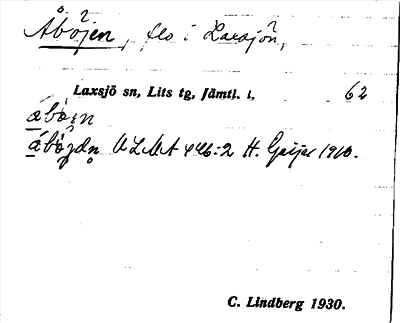 Åböjen, flo i Laxsjön,
Laxsjö sn, Lits tg, Jämtl. l. 62
ULMA 446:2 H. Geijer 1910.
C. Lindberg 1930.